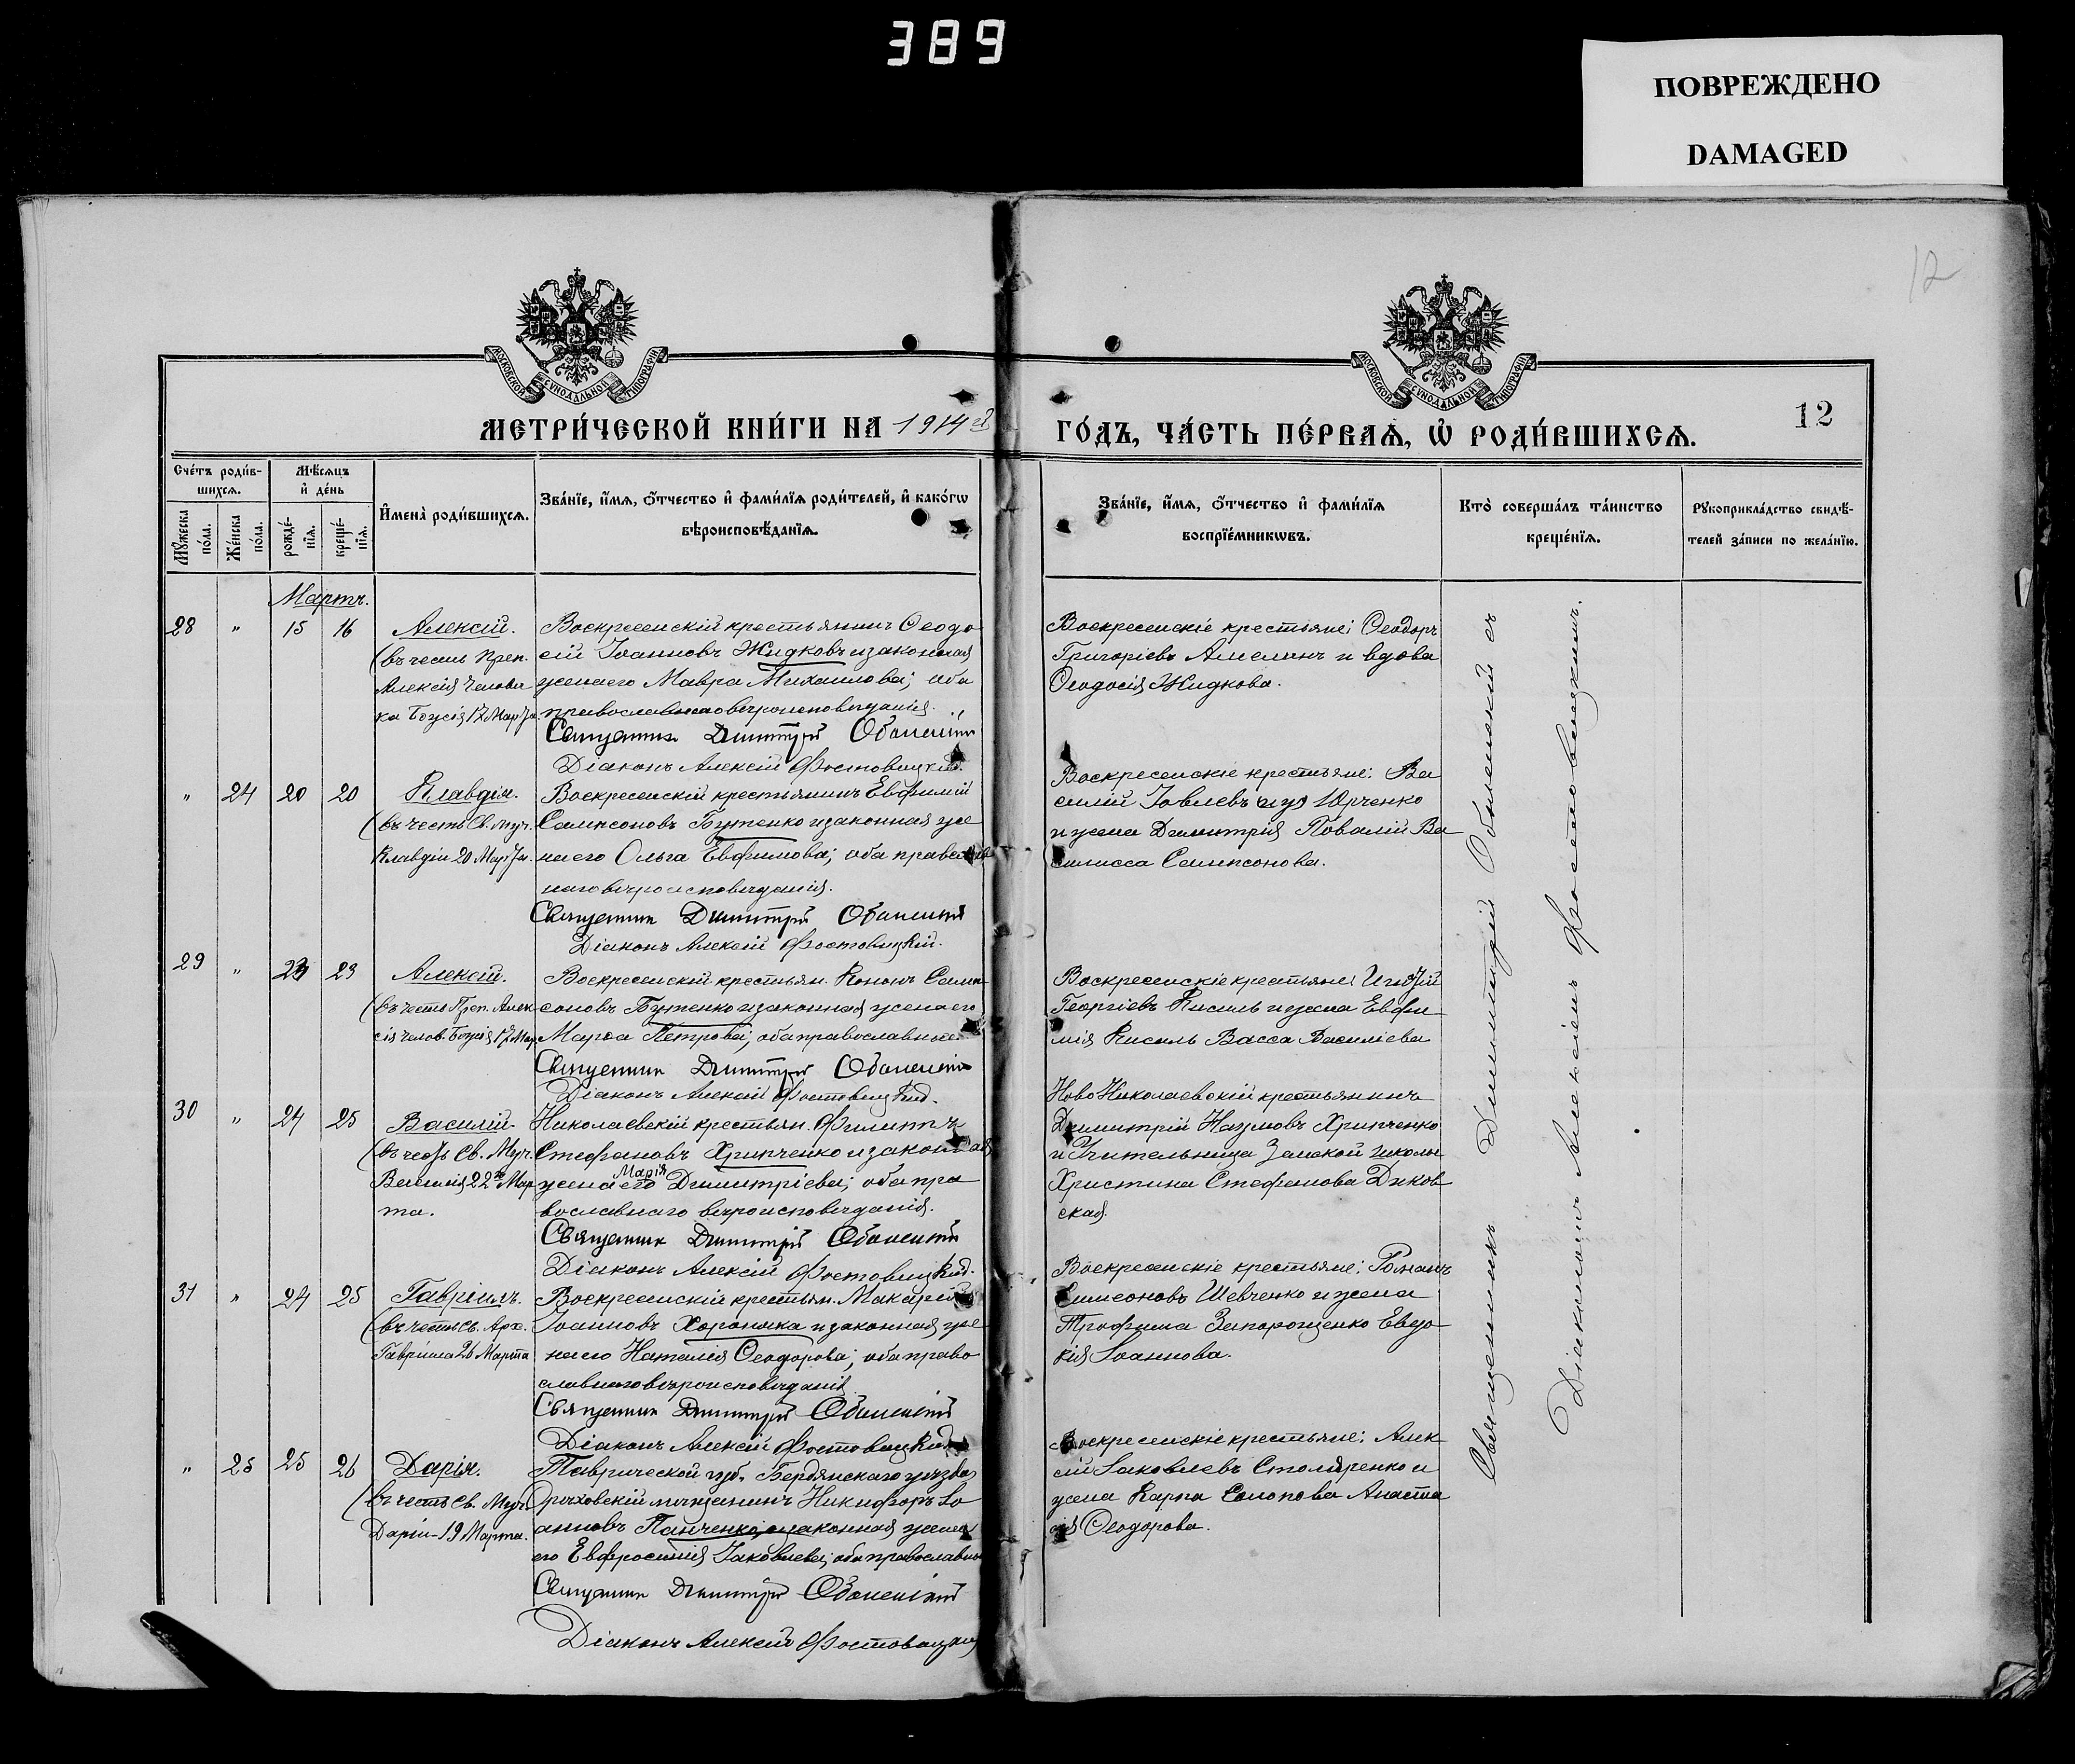 389
ПОВРЕЖДЕНО
DAMAGED
12
МОСКОВСКОЙ СѴНОДАЛЬНОЙ ТИПОГРАФІИ
МОСКОВСКОЙ СѴНОДАЛЬНОЙ ТИПОГРАФІИ
МЕТРИ́ЧЕСКОЙ КНИ́ГИ НА 1914й
ГО́ДЪ, ЧА́СТЬ ПЕ́РВАѦ, Ѽ РОДИ́ВШИХСѦ.
12
Сче́тъ роди́в-
шихсѧ.
Мѣ́сѧцъ
и҆ де́нь
Мꙋ́жеска
по́ла.
Же́нска
по́ла.
рожде́-
нїѧ.
креще́-
нїѧ.
И҆мена̀ роди́вшихсѧ.
Зва́нїе, и҆́мѧ, ѻ҆́тчество и҆ фами́лїѧ роди́телей, и҆ како́гѡ
вѣроисповѣ́данїѧ.
Зва́нїе, и҆́мѧ, ѻ҆́тчество и҆ фами́лїѧ
воспрїе́мникѡвъ.
Кто̀ соверша́лъ та́инство
креще́нїѧ.
Рꙋкоприкла́дство свидѣ́-
телей за́писи по жела́нїю.
Мартъ.
28 " 15 16
Алексій.
(въ честь Преп.
Алексія Челове
ка Божія 17 Марта
Воскресенскій крестьянинъ Ѳеодо
сій Іоанновъ Жидковъ и законная
жена его Мавра Михаилова; оба
православнаго вѣроисповѣданія.
Священник Димитрий Оболенскій
Діаконъ Алексій Фостовицкій.
Воскресенскіе крестьяне: Ѳеодоръ
Григоріевъ Амелинъ и вдова
Ѳеодосія Жидкова.
" 24 20 20
Клавдія.
(въ честь Св. Муч.
Клавдіи 20 Марта.
Воскресенскій крестьянинъ Евфимій
Сампсоновъ Бутенко и законная же
на его Ольга Евфимова; оба православ
наго вѣроисповѣданія.
Священник Димитрий Оболенскій
Діаконъ Алексій Фостовицкій.
Воскресенскіе крестьяне: Ва
силій Іовлевъ Юрченко
и жена Димитрія Повалій Ва
силисса Сампсонова.
29 " 23 23
Алексій.
(въ честь Преп. Алек
сія Челов. Божія 17 Мар.
Воскресенскій крестьян. Кононъ Самп
соновъ Бутенко и законная жена его
Марѳа Петрова; оба православные.
Священник Димитрий Оболенскій
Діаконъ Алексій Фостовицкій.
Воскресенскіе крестьяне: Игнатій
Георгіевъ Кисиль и жена Евфи
мія Кисиль Васса Василіева
30 " 24 25
Василій.
(въ честь Св. Муч.
Василія 22го Мар
та.
Николаевскій крестьян. Филиппъ
Стефановъ Хрипченко и законная
Марія
жена его Димитріева; оба пра
вославнаго вѣроисповѣданія.
Священник Димитрий Оболенскій
Діаконъ Алексій Фостовицкій.
Ново Николаевскій крестьянинъ
Димитрій Наумовъ Хрипченко
и Учительница Земской школы
Христина Стефанова Диков
ская.
31 " 24 25
Гавріилъ.
(въ честь Св. Арх.
Гавріила 26 Марта
Воскресенскій крестьян. Макарій
Іоанновъ Хороняка и законная же
на его Наталія Ѳеодорова; оба право
славнаго вѣроисповѣданія
Священник Димитрий Оболенскій
Діаконъ Алексій Фостовицкій
Воскресенскіе крестьяне: Романъ
Симеоновъ Шевченко и жена
Трофима Запорощенко Евдо
кія Іоаннова.
" 25 25 26
Дарія.
(въ честь Св. Муч.
Даріи - 19 Марта.
Таврической губ. Бердянскаго уѣзда
Орѣховскій мѣщанинъ Никифоръ Іо
анновъ Панченко и законная жена
его Евфросинія Іаковлева; оба православные
Священник Димитрий Оболенскій
Діаконъ Алексій Фостовицкій
Воскресенскіе крестьяне: Алек
сій Іаковлевъ Столяренко и
жена Карпа Солопова Анаста
сія Ѳеодорова.
Священникъ Димитрій Оболенскій съ
Діакономъ Алексіемъ Фостовицкимъ.